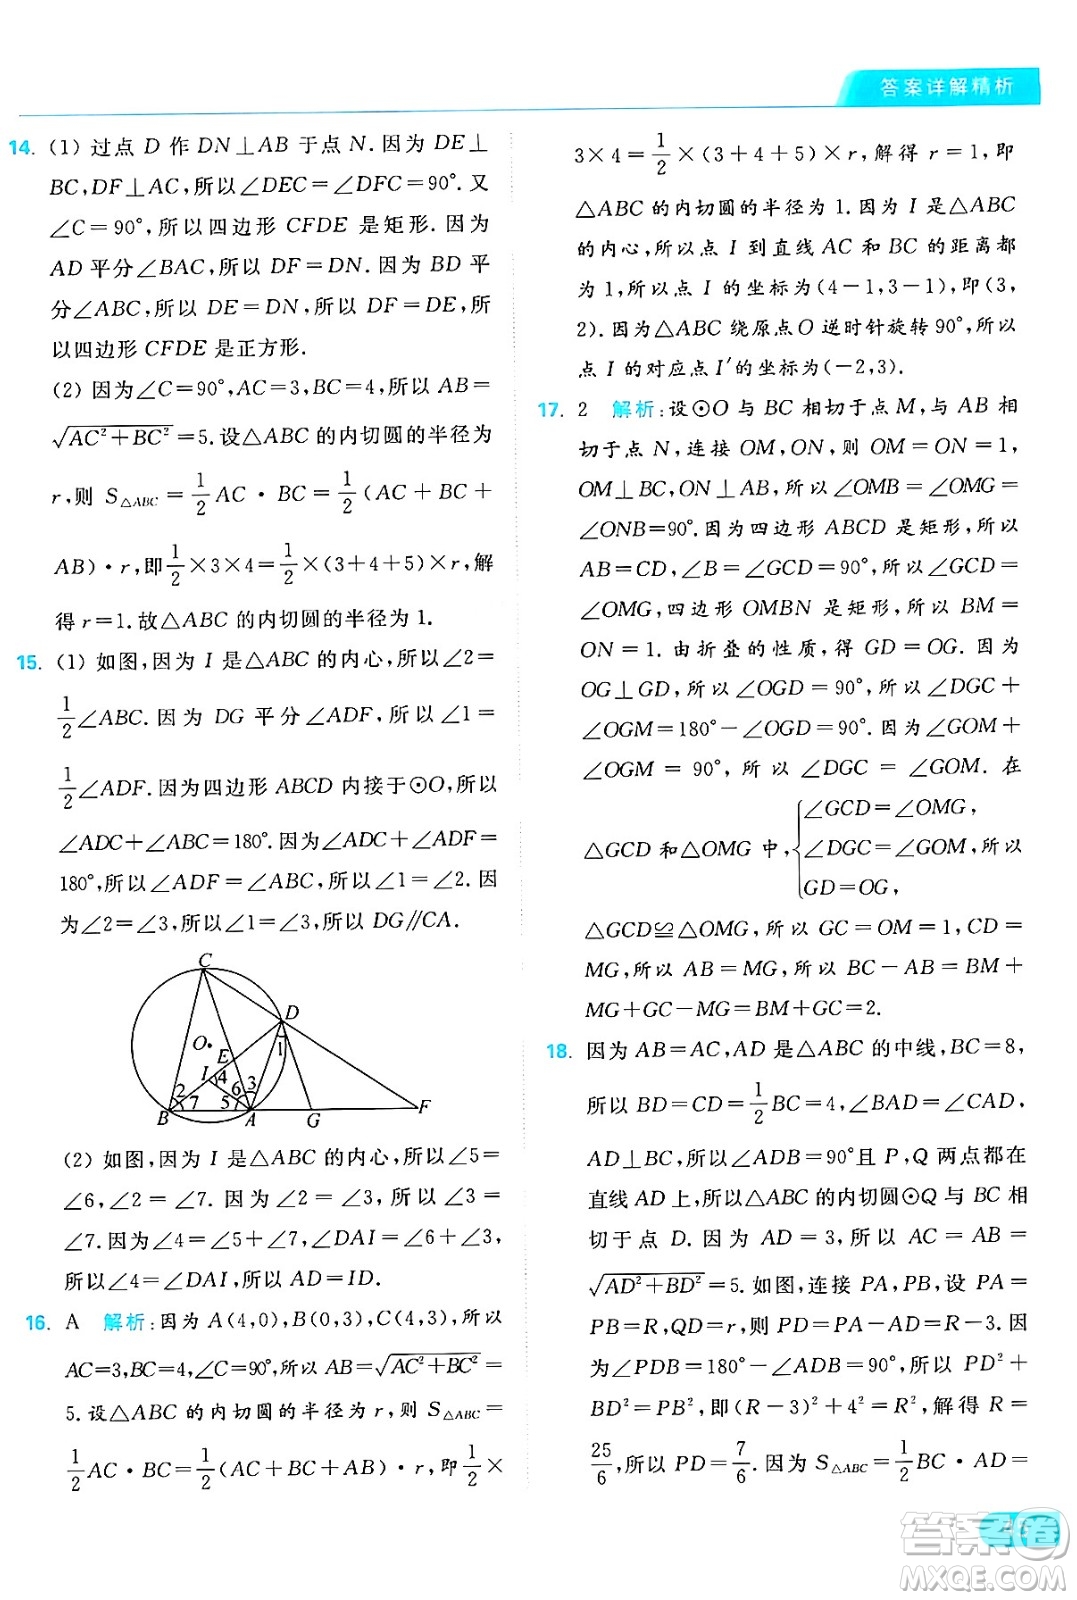 答案详解精析
14. (1) 过点 D 作 DN⊥AB 于点 N. 因为 DE⊥
BC,DF⊥AC,所以∠DEC=∠DFC=90°. 又
∠C=90°,所以四边形 CFDE 是矩形. 因为
AD 平分∠BAC,所以 DF=DN. 因为 BD 平
分∠ABC,所以 DE=DN,所以 DF=DE,所
以四边形 CFDE 是正方形.
(2) 因为∠C=90°,AC=3,BC=4,所以 AB=
√(AC²+BC²)=5. 设△ABC 的内切圆的半径为
r,则 S△ABC=1/2 AC·BC=1/2(AC+BC+
AB)·r,即1/2×3×4=1/2×(3+4+5)×r,解
得 r=1. 故△ABC 的内切圆的半径为 1.
15. (1) 如图,因为 I 是△ABC 的内心,所以∠2=
1/2∠ABC. 因为 DG 平分∠ADF,所以∠1=
1/2∠ADF. 因为四边形 ABCD 内接于⊙O,所以
∠ADC+∠ABC=180°. 因为∠ADC+∠ADF=
180°,所以∠ADF=∠ABC,所以∠1=∠2. 因
为∠2=∠3,所以∠1=∠3,所以 DG∥CA.
C
D
O
1
E
I
4
2
6
3
7
5
B
A
G
F
(2) 如图,因为 I 是△ABC 的内心,所以∠5=
∠6,∠2=∠7. 因为∠2=∠3,所以∠3=
∠7. 因为∠4=∠5+∠7,∠DAI=∠6+∠3,
所以∠4=∠DAI,所以 AD=ID.
16. A 解析:因为 A(4,0),B(0,3),C(4,3),所以
AC=3,BC=4,∠C=90°,所以 AB=√(AC²+BC²)=
5. 设△ABC 的内切圆的半径为 r,则 S△ABC=
1/2 AC·BC=1/2(AC+BC+AB)·r,即1/2×
3×4=1/2×(3+4+5)×r,解得 r=1,即
△ABC 的内切圆的半径为 1. 因为 I 是△ABC
的内心,所以点 I 到直线 AC 和 BC 的距离都
为 1,所以点 I 的坐标为(4-1,3-1),即(3,
2). 因为△ABC 绕原点 O 逆时针旋转 90°,所以
点 I 的对应点 I′的坐标为(-2,3).
17. 2 解析:设⊙O 与 BC 相切于点 M,与 AB 相
切于点 N,连接 OM,ON,则 OM=ON=1,
OM⊥BC,ON⊥AB,所以∠OMB=∠OMG=
∠ONB=90°. 因为四边形 ABCD 是矩形,所以
AB=CD,∠B=∠GCD=90°,所以∠GCD=
∠OMG,四边形 OMBN 为矩形,所以 BM=
ON=1. 由折叠的性质,得 GD=OG. 因为
OG⊥GD,所以∠OGD=90°,所以∠DGC+
∠OGM=180°-∠OGD=90°. 因为∠GOM+
∠OGM=90°,所以∠DGC=∠GOM. 在
△GCD 和△OMG 中,{∠GCD=∠OMG,
∠DGC=∠GOM,所以
GD=OG,
△GCD≌△OMG,所以 GC=OM=1,CD=
MG,所以 AB=MG,所以 BC-AB=BM+
MG+GC-AB=BM+GC=2.
18. 因为 AB=AC,AD 是△ABC 的中线,BC=8,
所以 BD=CD=1/2 BC=4,∠BAD=∠CAD,
AD⊥BC,所以∠ADB=90°且 P,Q 两点都在
直线 AD 上,所以△ABC 的内切圆⊙Q 与 BC 相
切于点 D. 因为 AD=3,所以 AC=AB=
√(AD²+BD²)=5. 如图,连接 PA,PB,设 PA=
PB=R,QD=r,则 PD=PA-AD=R-3. 因
为∠PDB=180°-∠ADB=90°,所以 PD²+
BD²=PB²,即(R-3)²+4²=R²,解得 R=
25/6,所以 PD=7/6. 因为 S△ABC=1/2 BC·AD=
答案卷
MXQE.COM